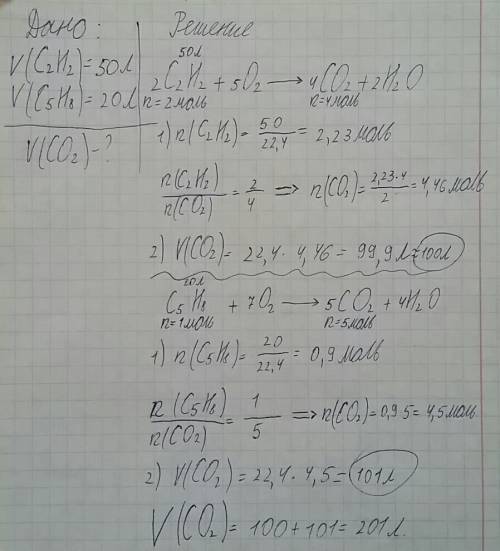 Дано:
V(C₂H₂)=50л
V(C₅H₈)=20л
V(CO₂)-?
Решение
50л
2C₂H₂ + 5O₂ ⟶ 4CO₂ + 2H₂O
n=2моль n=4моль
1) n(C₂H₂)= 50/22,4 = 2,23моль
n(C₂H₂)/n(CO₂) = 2/4 => n(CO₂)= 2,23·4/2 = 4,46моль
2) V(CO₂)= 22,4 · 4,46 = 99,9л≈100л
20л
C₅H₈ + 7O₂ ⟶ 5CO₂ + 4H₂O
n=1моль n=5моль
1) n(C₅H₈)= 20/22,4 = 0,9моль
n(C₅H₈)/n(CO₂) = 1/5 => n(CO₂)=0,9·5= 4,5моль
2) V(CO₂)=22,4·4,5=101л
V(CO₂)= 100+101= 201л.